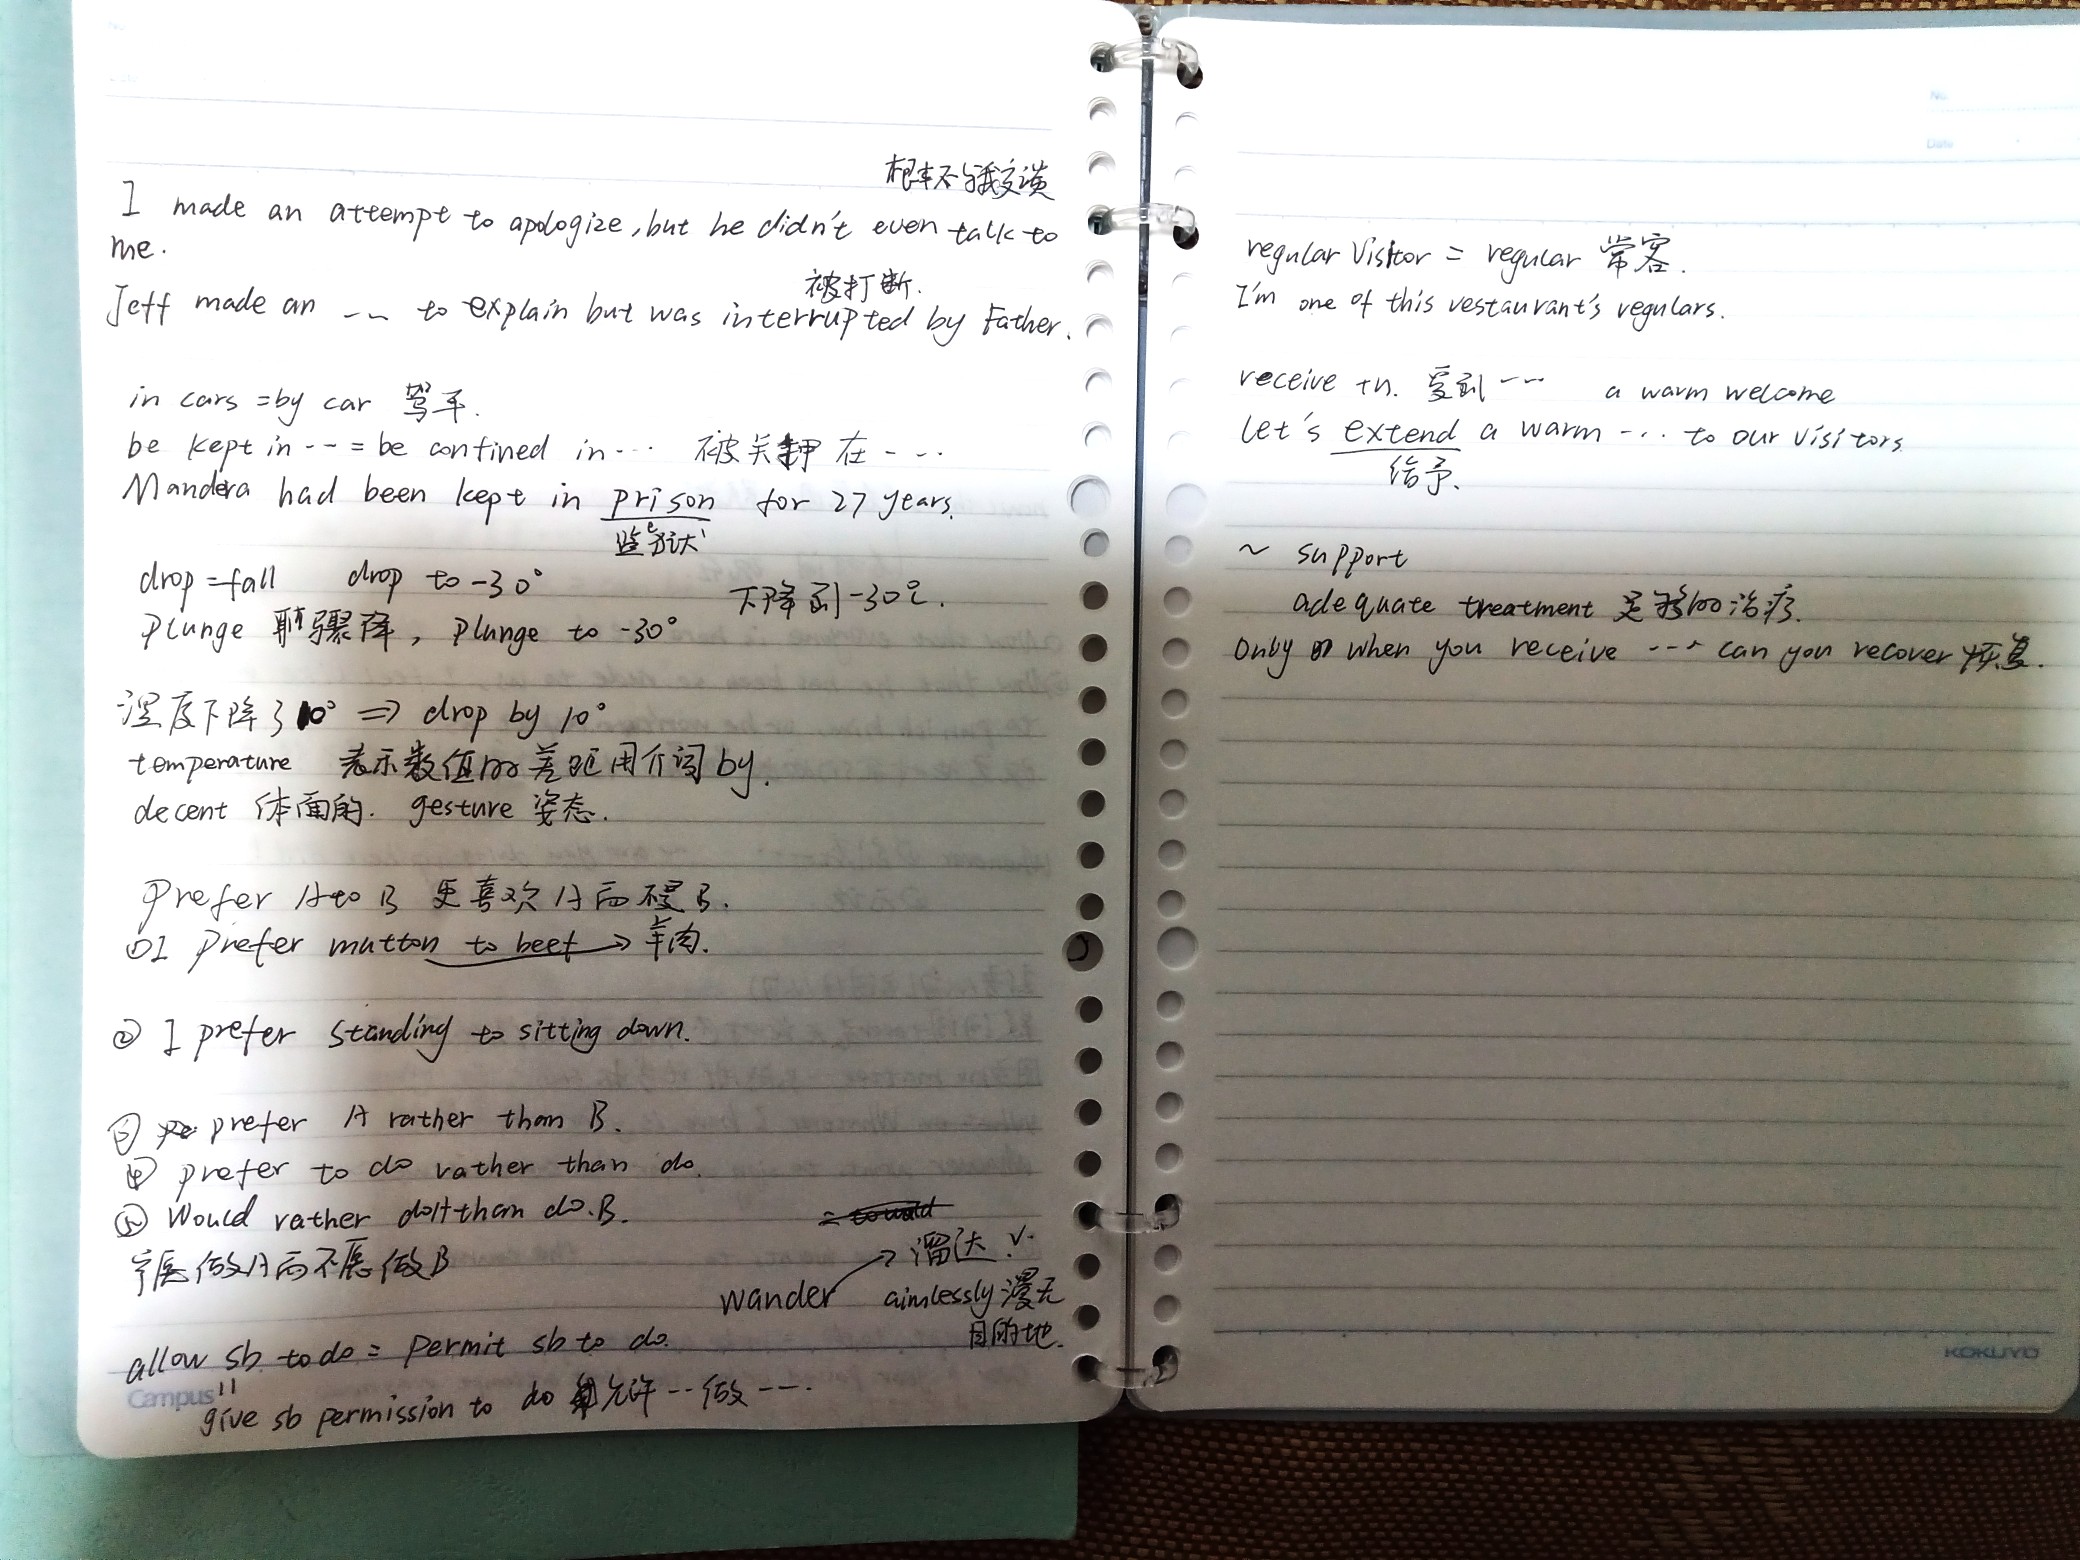 根本不与我交谈
I made an attempt to apologize, but he didn't even talk to
me.
被打断.
Jeff made an --- to explain but was interrupted by Father.
in cars = by car 驾车.
be kept in --- = be confined in ... 被关押在 ...
Mandera had been kept in prison for 27 years.
监狱
drop = fall drop to -30° 下降到-30℃.
Plunge 骤降, plunge to -30°
温度下降了10° ⇒ drop by 10°
temperature 表示数值的差距用介词by.
decent 体面的. gesture 姿态.
Prefer A to B 更喜欢A而不是B.
① I prefer mutton to beef → 羊肉.
② I prefer standing to sitting down.
③ prefer A rather than B.
④ prefer to do rather than do.
⑤ Would rather do A than do.B.
宁愿做A而不愿做B
wander → 溜达 v.
aimlessly 漫无
目的地.
allow sb. to do = permit sb to do.
Campus
give sb permission to do 允许...做....
No.
Date
regular visitor = regular 常客.
I'm one of this restaurant's regulars.
receive +n. 受到 --- a warm welcome
Let's extend a warm ... to our visitors
给予.
~ support
adequate treatment 足够的治疗.
Only when you receive --- can you recover 恢复.
KOKUYO